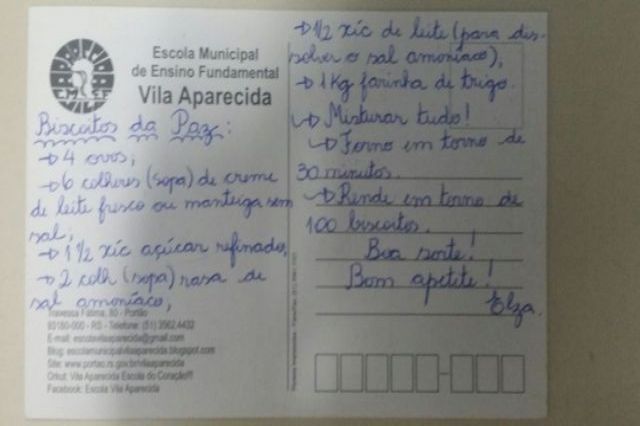 E M E F
Escola Municipal
de Ensino Fundamental
Vila Aparecida
Biscoitos da Paz:
→ 4 ovos;
→ 6 colheres (sopa) de creme
de leite fresco ou manteiga sem
sal;
→ 1 1/2 xíc açúcar refinado;
→ 2 colh (sopa) rasa de
sal amoníaco;
Travessa Fátima, 80 - Portão
93180-000 - RS - Telefone: (51) 3562.4432
E-mail: escolavilaaparecida@gmail.com
Blog: escolamunicipalvilaaparecida.blogspot.com
Site: www.portao.rs.gov.br/vilaaparecida
Orkut: Vila Aparecida Escola do Coração!!!
Facebook: Escola Vila Aparecida
→ 1/2 xíc de leite (para dis-
solver o sal amoníaco);
→ 1 Kg farinha de trigo.
→ Misturar tudo!
→ Forno em torno de
30 minutos.
→ Rende em torno de
100 biscoitos.
Boa sorte!
Bom apetite!
Elza.